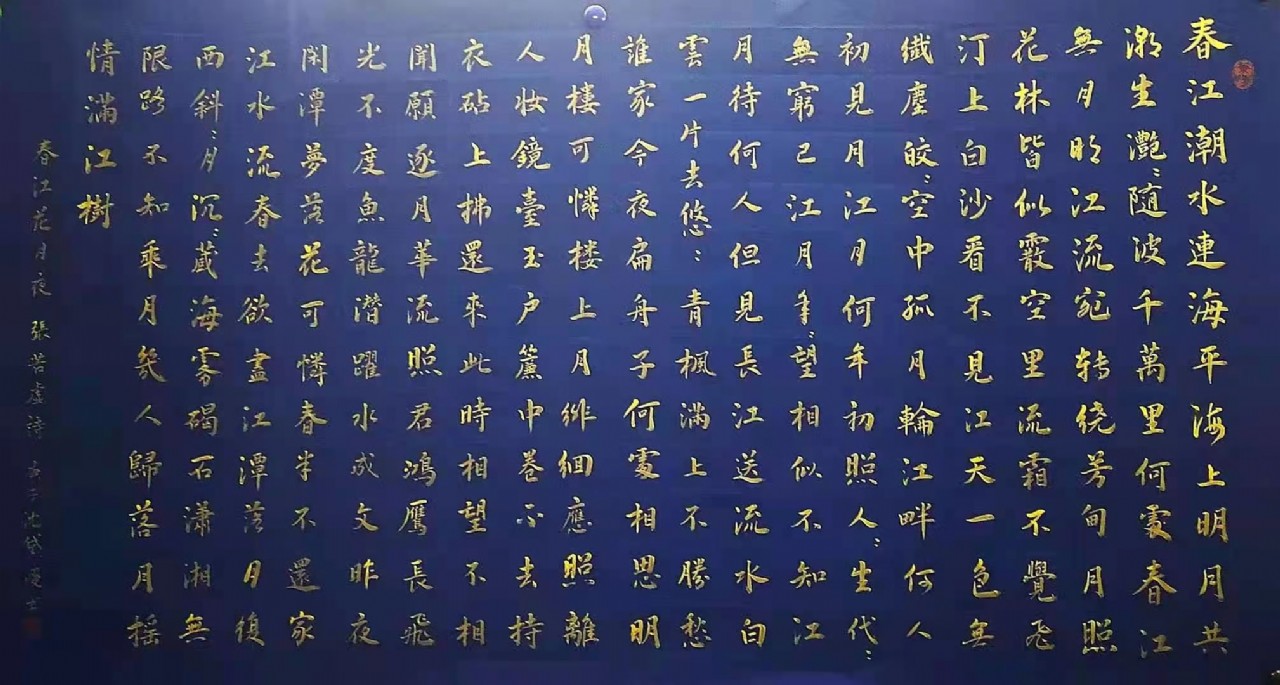 春江潮水連海平海上明月共
潮生灩〻隨波千萬里何處春江
無月明江流宛转绕芳甸月照
花林皆似霰空里流霜不覺飛
汀上白沙看不見江天一色無
纖塵皎〻空中孤月輪江畔何人
初見月江月何年初照人〻生代〻
無窮已江月年〻望相似不知江
月待何人但見長江送流水白
雲一片去悠〻青楓满上不勝愁
誰家今夜扁舟子何處相思明
月樓可憐楼上月徘徊應照離
人妆鏡臺玉户簾中卷不去持
衣砧上拂還來此時相望不相
聞願逐月華流照君鴻鷹長飛
光不度魚龍潜躍水成文昨夜
閑潭夢落花可憐春半不還家
江水流春去欲盡江潭落月復
西斜〻月沉〻藏海雾碣石瀟湘無
限路不知乘月幾人歸落月摇
情滿江樹
春江花月夜 張若虛詩